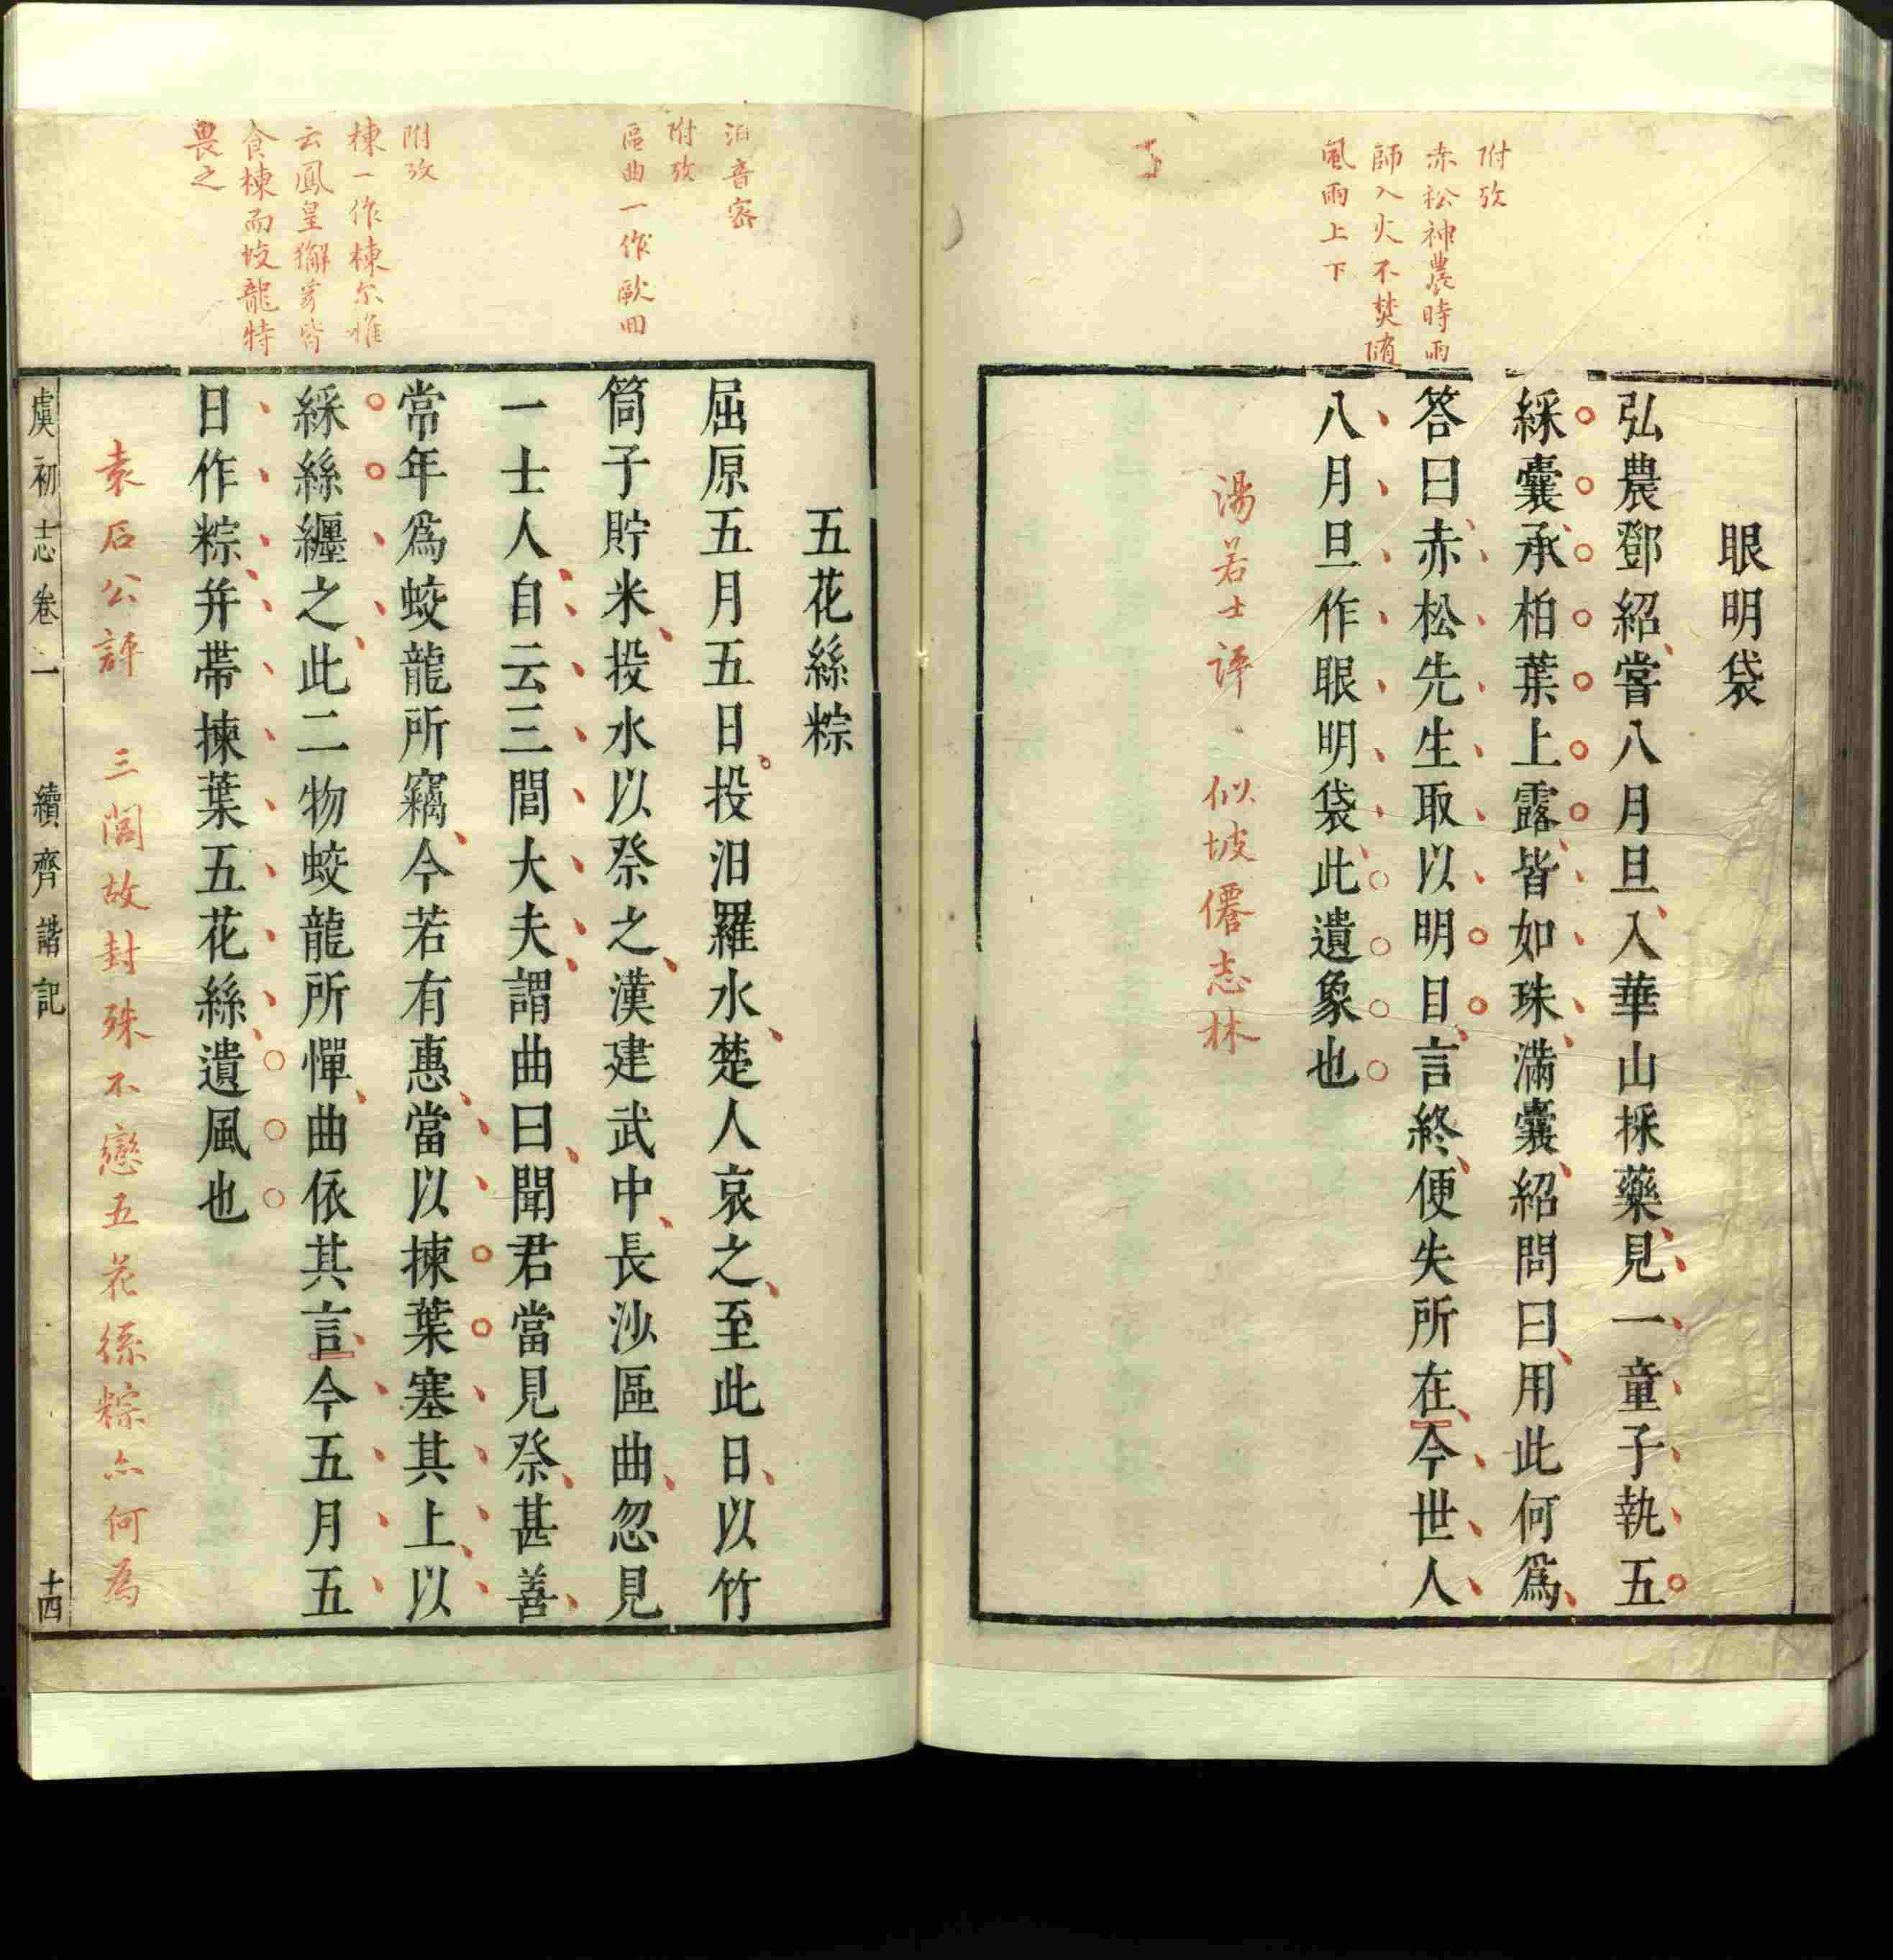 附攷
赤松神農時雨
師入火不焚随
風雨上下
眼明袋
弘農鄧紹嘗八月旦入華山採藥見一童子執五
綵囊承柏葉上露皆如珠滿囊紹問曰用此何爲
答曰赤松先生取以明目言終便失所在今世人
八月旦作眼明袋此遺象也
湯若士評 似坡僊志林
汨音密
附攷
區曲一作歐回
附攷
楝一作楝尔雅
云鳳皇獬豸皆
食楝而蛟龍特
畏之
五花絲粽
屈原五月五日投汨羅水楚人哀之至此日以竹
筒子貯米投水以祭之漢建武中長沙區曲忽見
一士人自云三閭大夫謂曲曰聞君當見祭甚善
常年爲蛟龍所竊今若有惠當以揀葉塞其上以
綵絲纏之此二物蛟龍所憚曲依其言今五月五
日作粽并帶揀葉五花絲遺風也
袁石公評 三閭故封殊不戀五花絲粽亦何爲
虞初志卷一 續齊諧記 十四